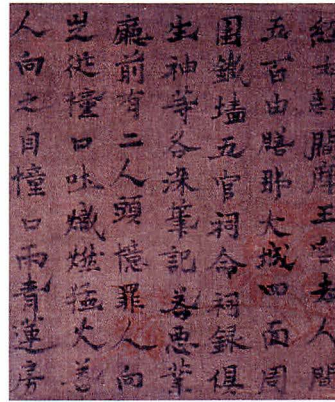 經王宮去人間
五百由膳那大城四面周
圍鐵墻五官祠命祠録俱
生神等各染筆記善惡業
廳前有二人頭幢罪人向
從幢口吐熾燃猛火善
人向之自幢口雨青蓮房